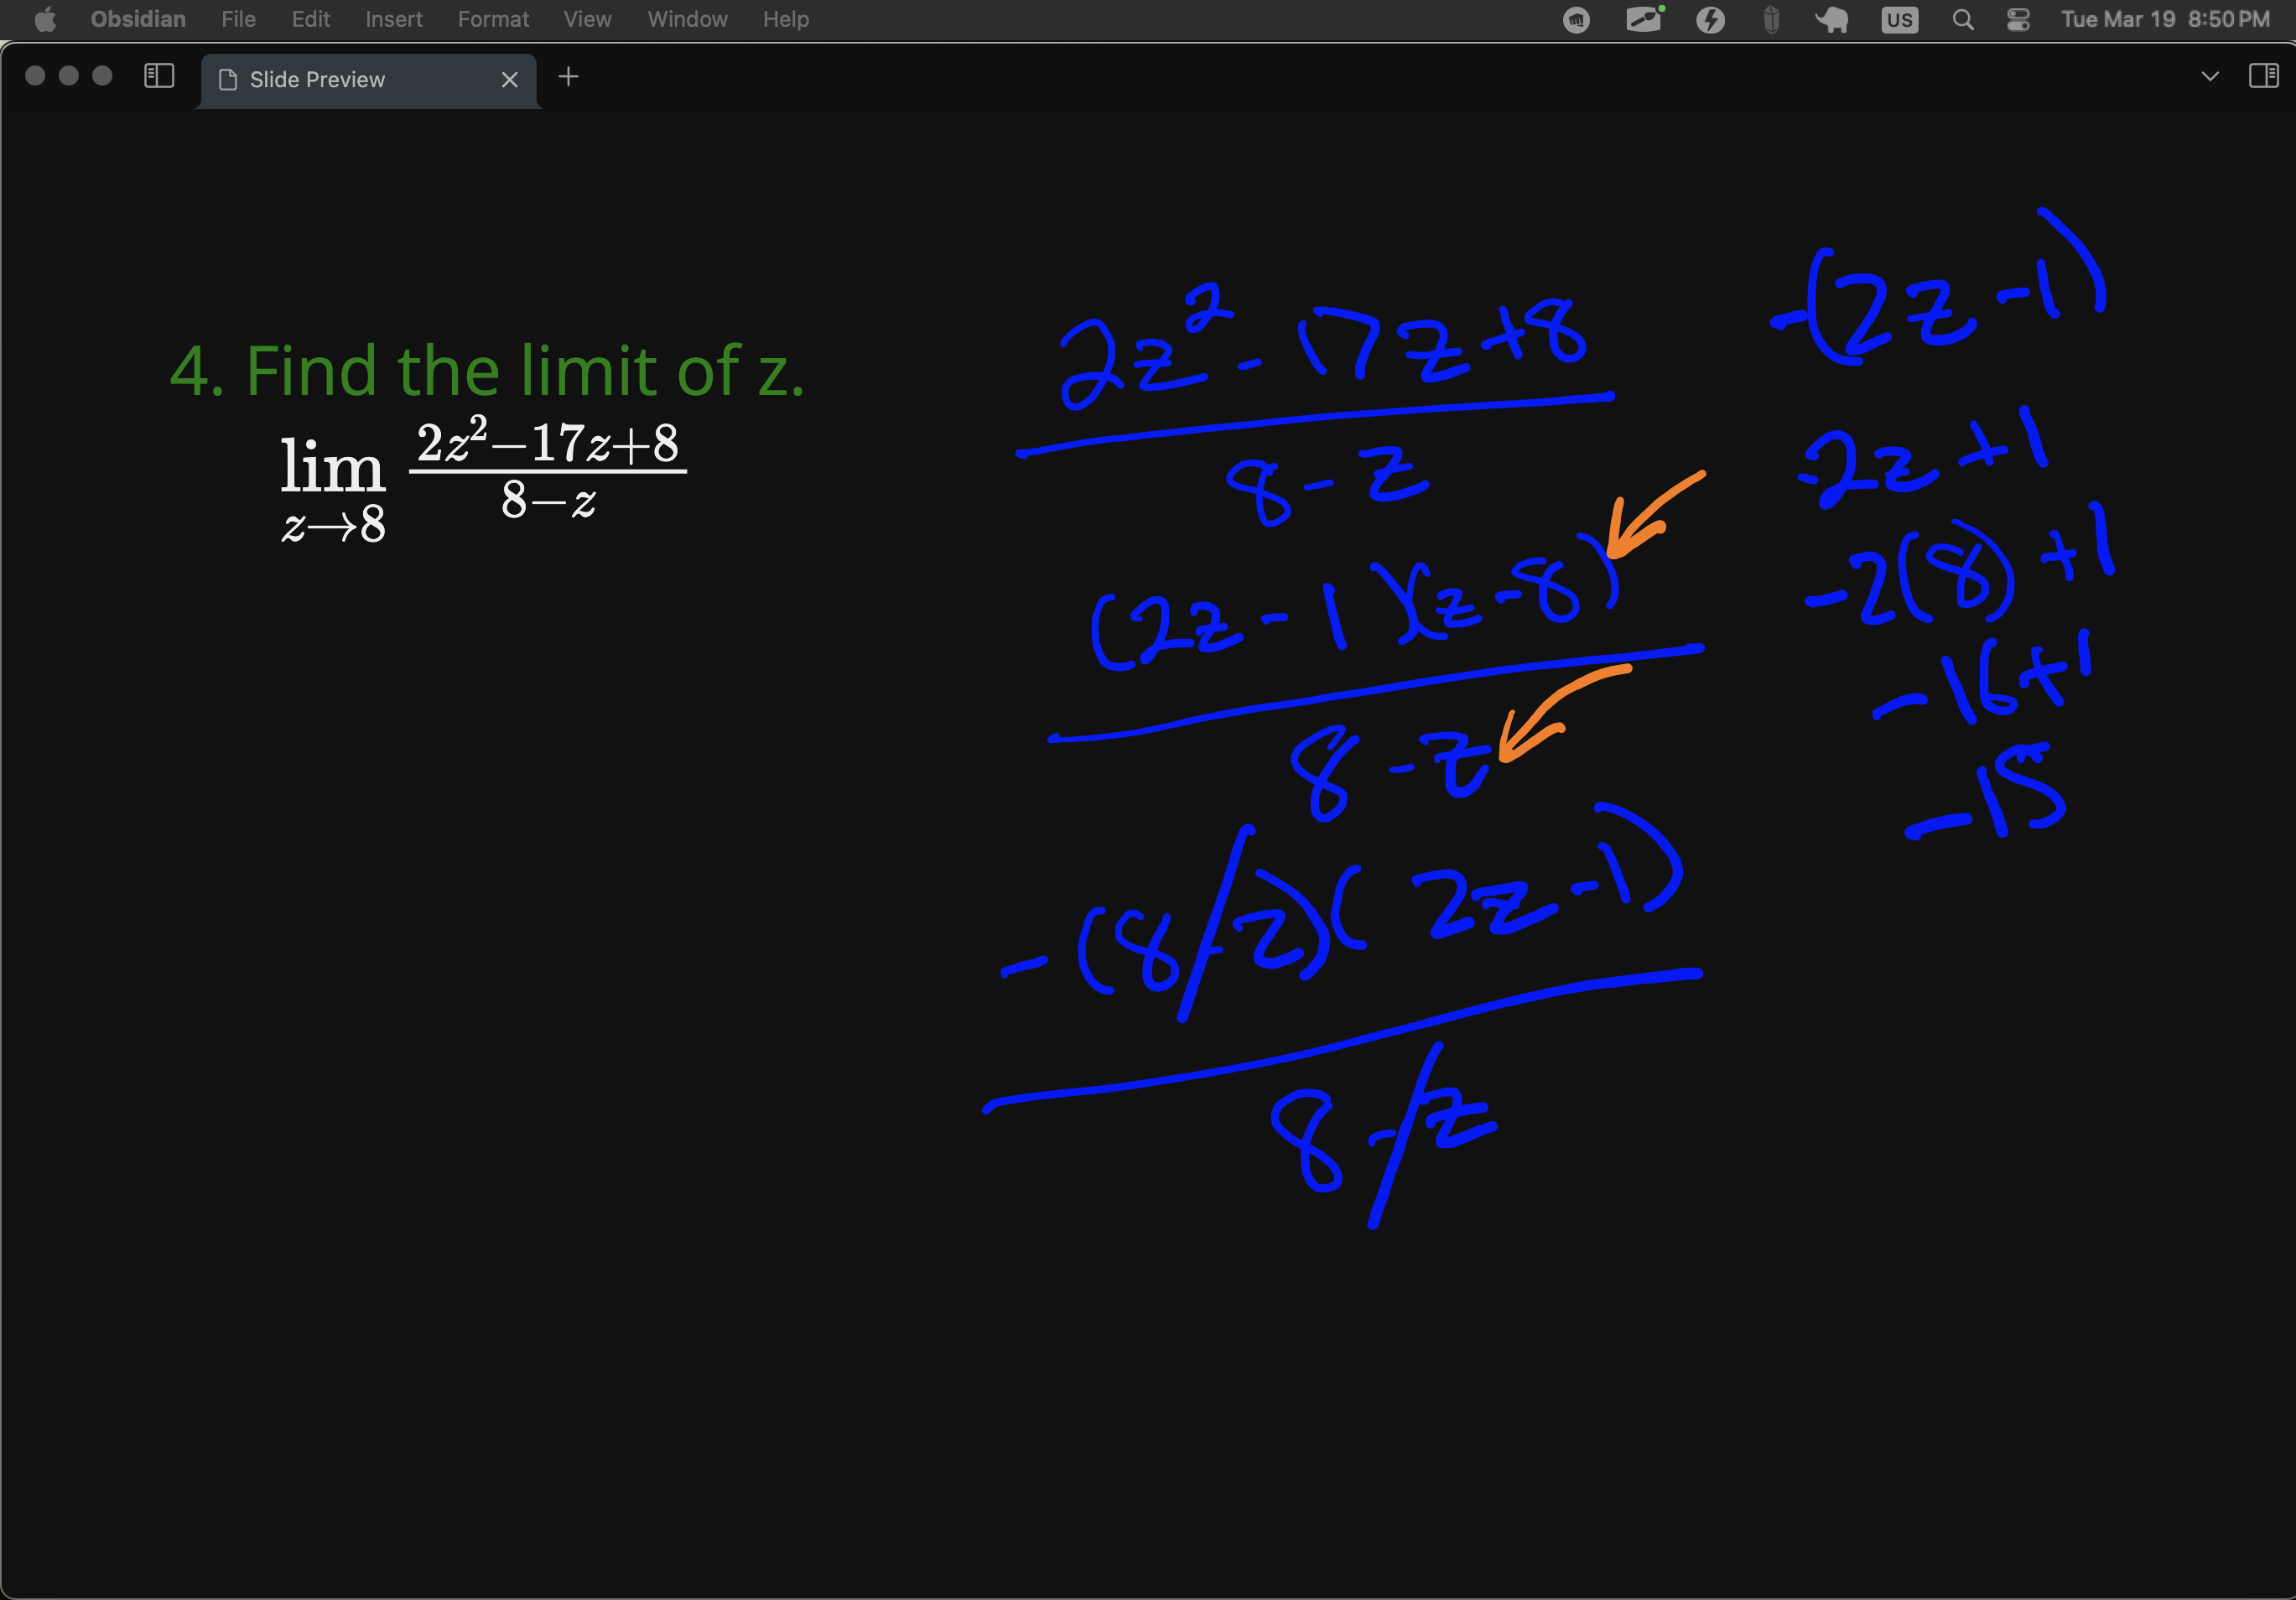 Obsidian File Edit Insert Format View Window Help US Tue Mar 19 8:50 PM
Slide Preview
4. Find the limit of z.
lim z→8 (2z² − 17z + 8)/(8 − z)
2z² - 17z + 8
8 - z
(2z - 1)(z - 8)
8 - z
-(8 - z)(2z - 1)
8 - z
-(2z - 1)
-2z + 1
-2(8) + 1
-16 + 1
-15